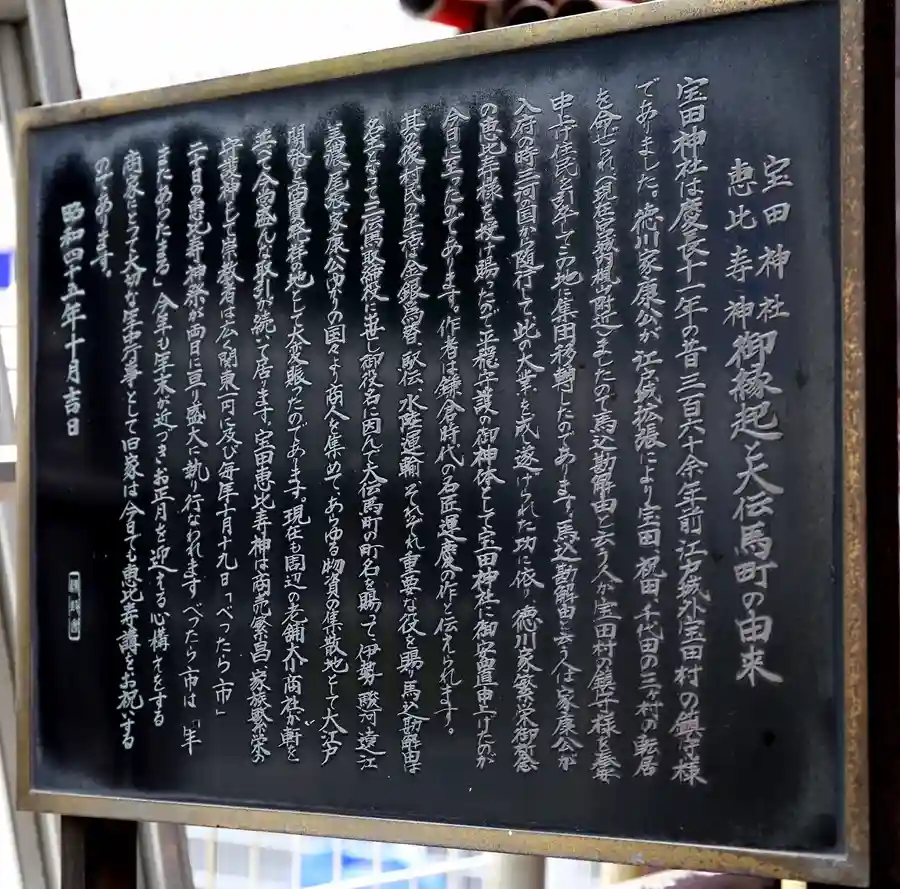 宝田神社
恵比寿神
御縁起と大伝馬町の由来
宝田神社は慶長十一年の昔三百六十余年前江戸城外宝田村の鎮守様
でありました。徳川家康公が江戸城拡張により宝田、祝田、千代田の三ヶ村の転居
を命ぜられ(現在宮城内楓山附近)ましたので馬込勘解由と云う人が宝田村の鎮守様を奉安
申上げ住民を引率してこの地に集団移轉したのであります。馬込勘解由と云う人は家康公が
入府の時三河の国から随行して、此の大業を成し遂げられた功に依り、徳川家繁栄御祈念
の恵比寿様を授け賜ったので平穏守護の御神体として宝田神社に御安置申上げたのが
今日に至ったのであります。作者は鎌倉時代の名匠運慶の作と伝えられます。
其の後村民の生活は金銀為替、駅伝、水陸運輸、それぞれ重要な役を賜り馬込勘解由は
名主となって三伝馬取締役に出世し御役名に因んで大伝馬町の町名を賜って、伊勢、駿河、遠江
美濃、尾張、家康公ゆかりの国々より商人を集めて、あらゆる物資の集散地として大江戸
開発と商賣発祥の地として大変賑ったのであります。現在も周辺の老舗大小商社が軒を
並べて今尚盛んな取引が続いて居ります。宝田恵比寿神は商売繁昌、家族繁栄の
守護神として崇敬者は広く関東一円に及び毎年十月十九日「べったら市」
二十日の恵比寿神祭が両日に亘り盛大に執り行なわれます。べったら市は「年
またあらたまる」今年も年末が近づき、お正月を迎える心構えをする
商家にとって大切な年中行事として旧家は今日でも恵比寿講をお祝いする
のであります。
昭和四十五年十月吉日